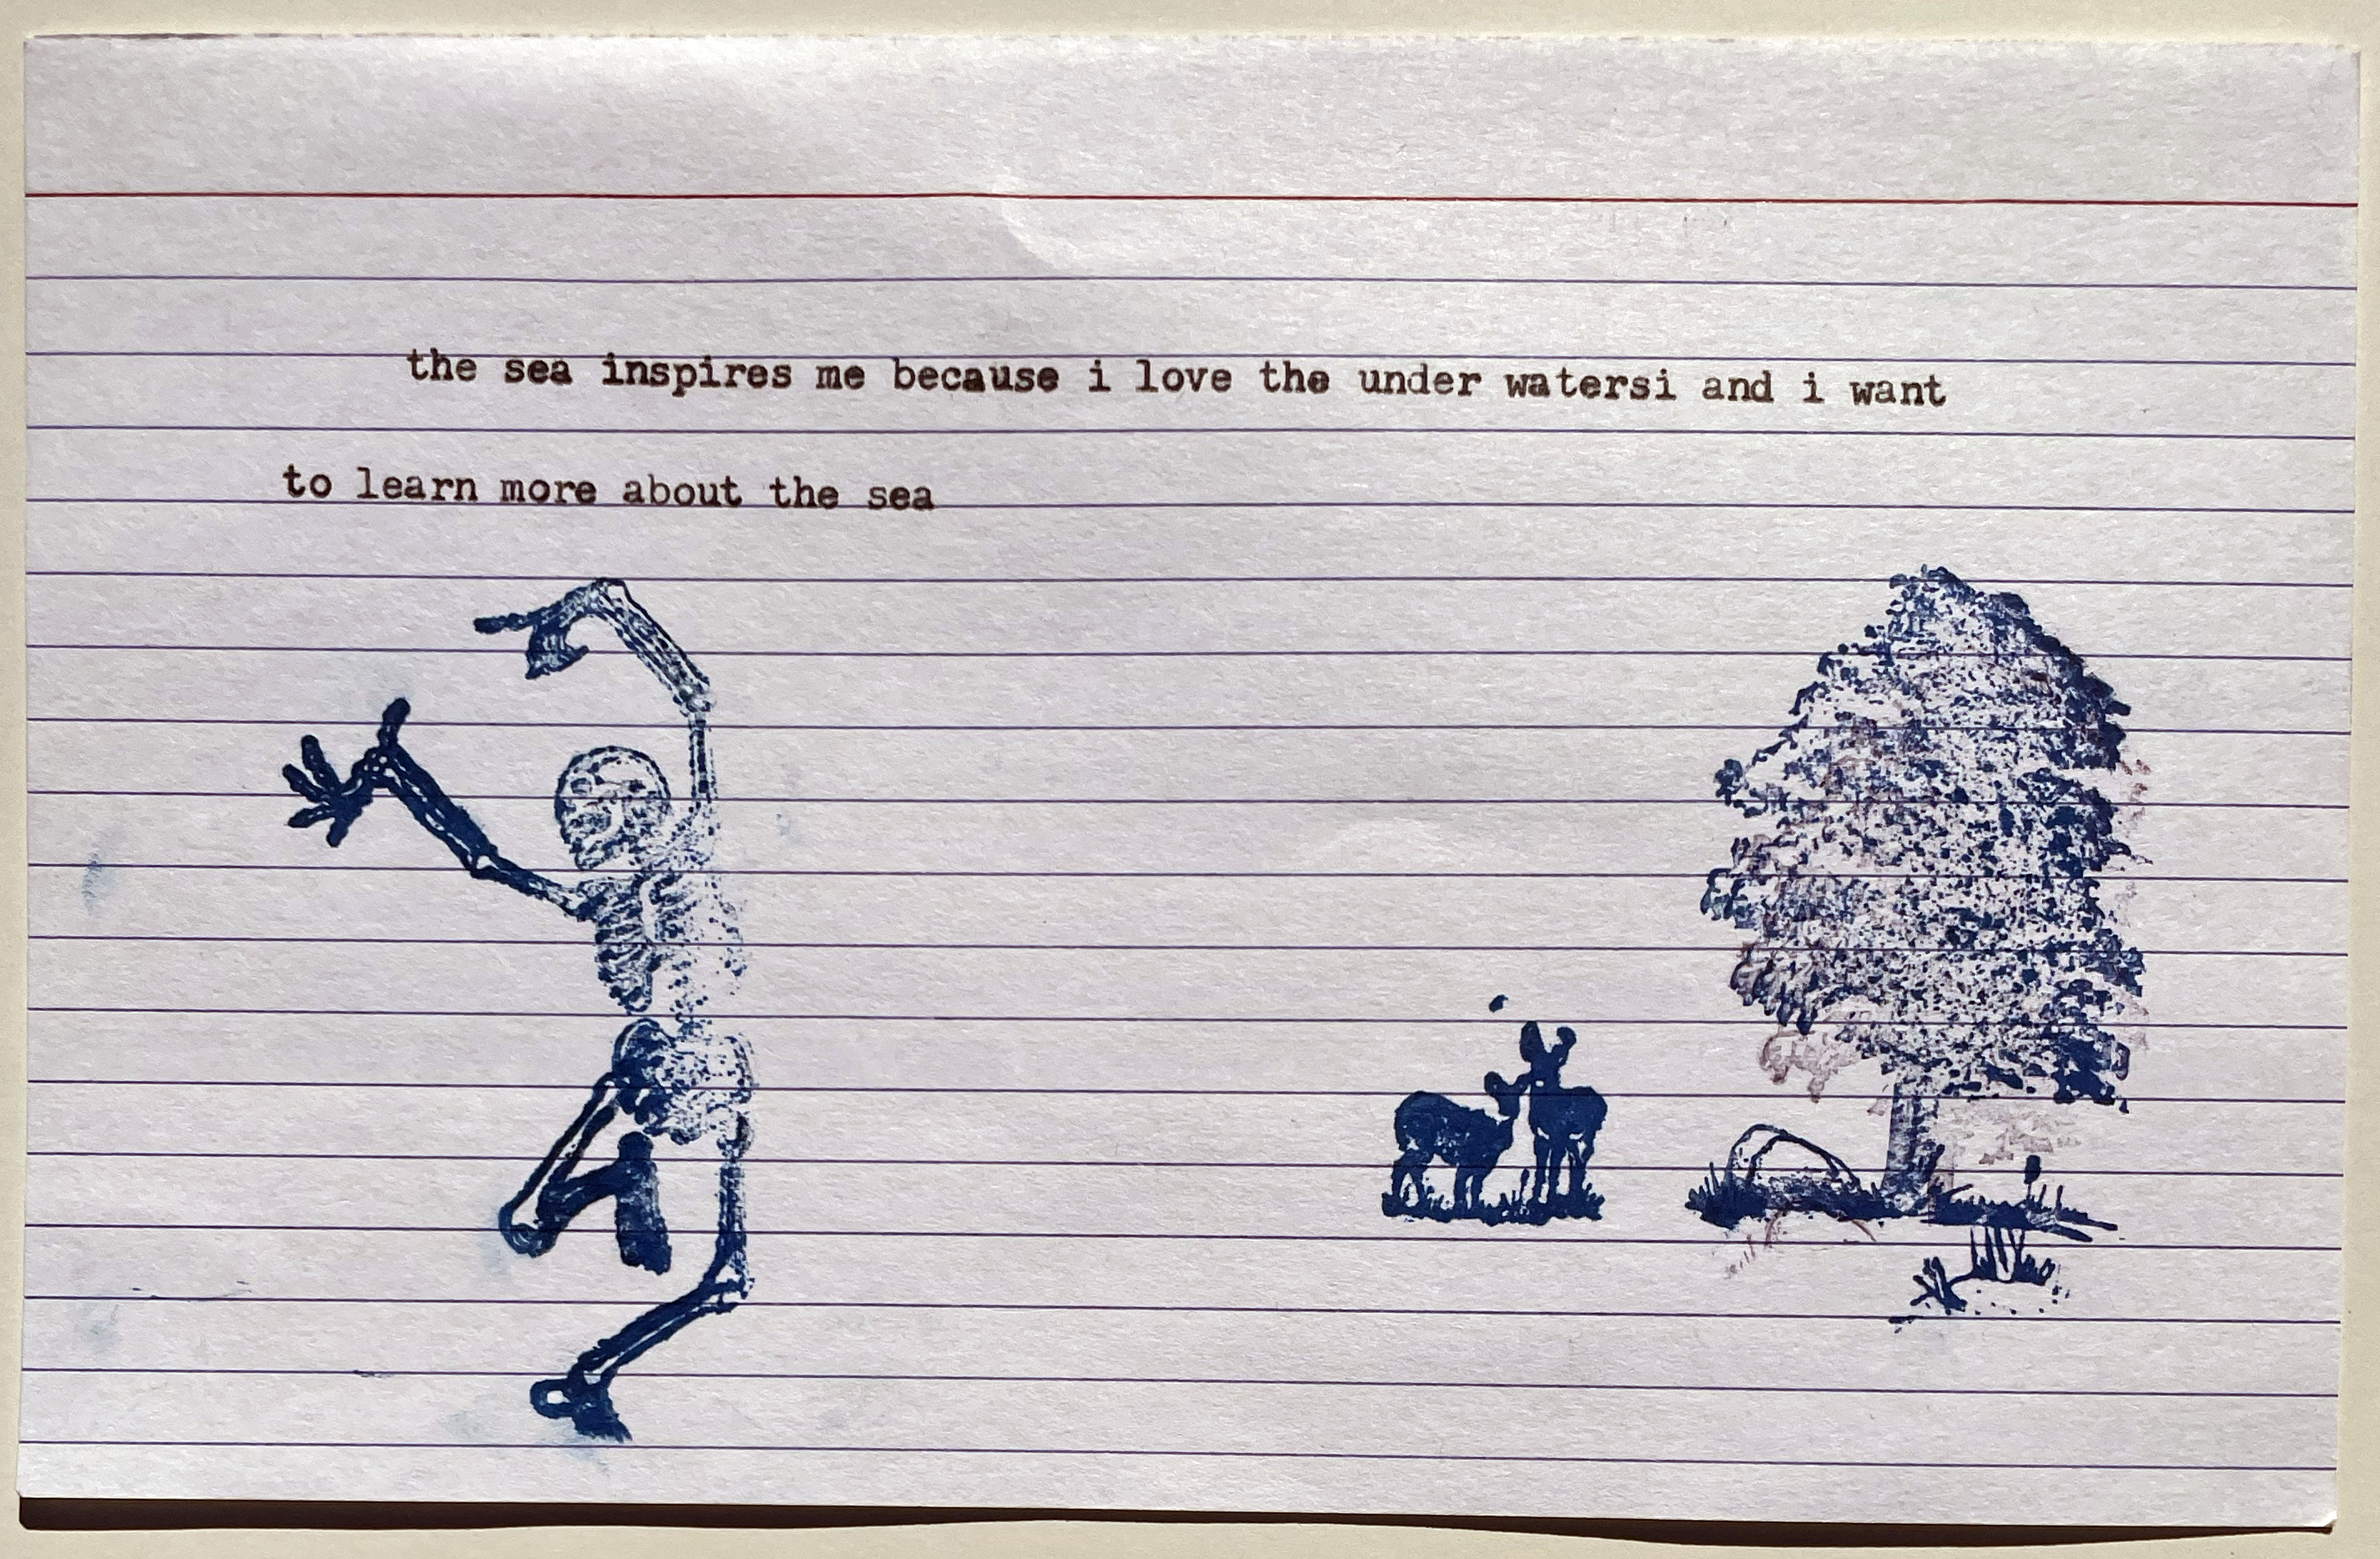 the sea inspires me because i love the under watersi and i want
to learn more about the sea